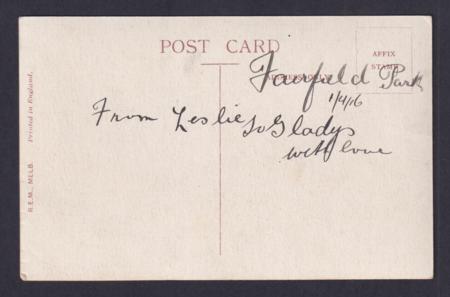 POST CARD
AFFIX
STAMP
ADDRESS ONLY
Fairfield Park
1/4/16
From Leslie to Gladys
with love
Printed in England.
R.E.M., MELB.